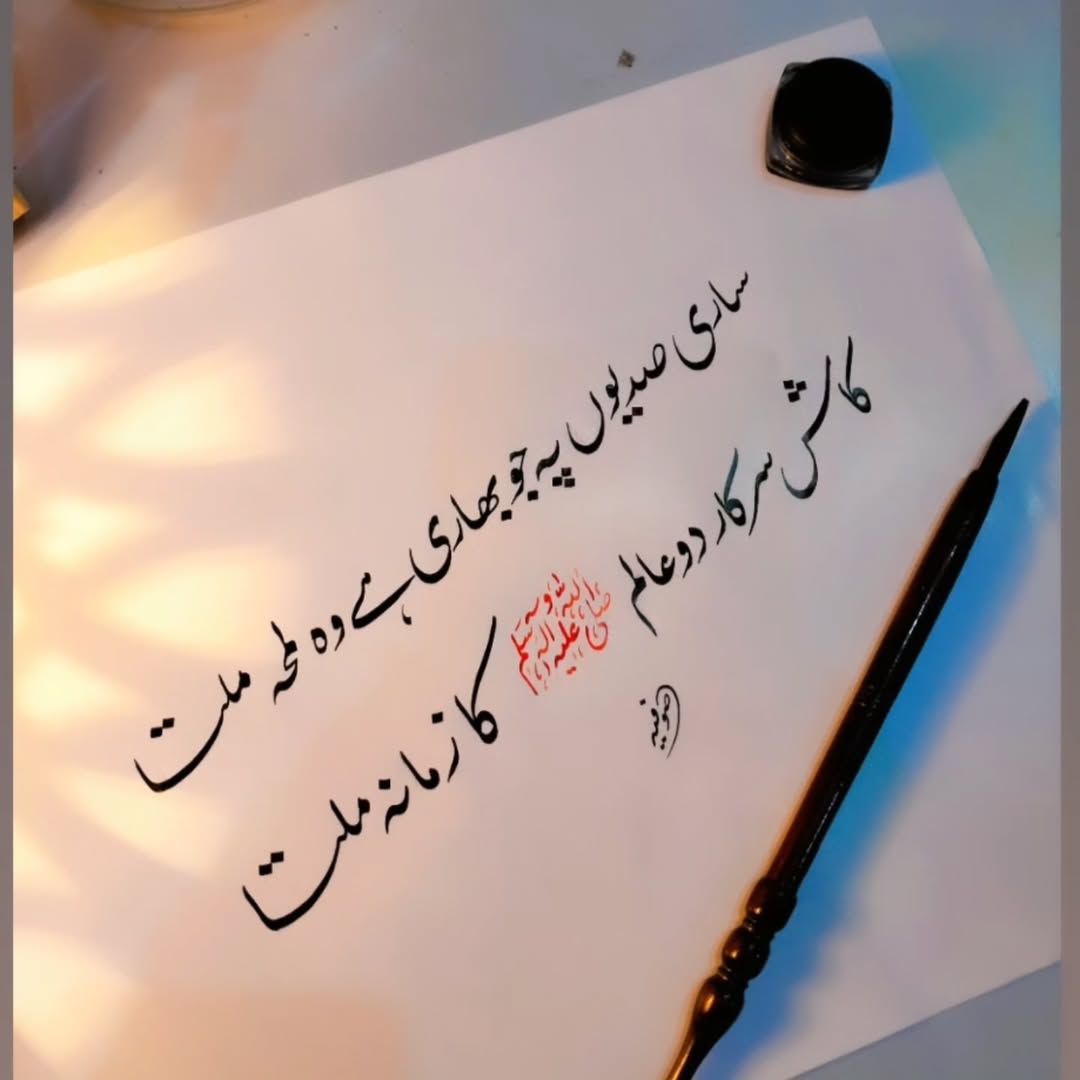 ساری صدیوں پہ جو بھاری ہے وہ لمحہ ملتا
کاش سرکار دو عالم صلی اللہ علیہ وآلہ وسلم کا زمانہ ملتا
صوفیہ